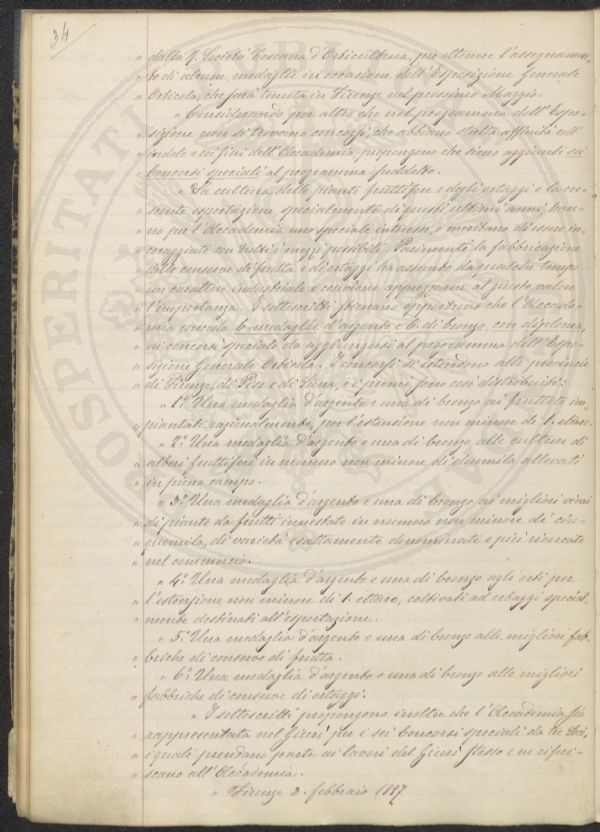 34
" dalla R. Società Toscana d'Orticultura, per ottenere l'assegnamen-
" to di alcune medaglie in occasione dell'Esposizione Generale
" Orticola, che sarà tenuta in Firenze nel prossimo Maggio.
" Considerando per altro che nel programma dell'Espo-
" sizione non si trovano concorsi che abbiano stretta affinità all'
" indole e ai fini dell'Accademia, propongono che siano aggiunti sei
" concorsi speciali al programma suddetto.
" La cultura delle piante fruttifere e degli ortaggi e la cre-
" scente esportazione, specialmente di questi ultimi anni, han-
" no per l'Accademia uno speciale interesse, e meritano di essere in-
" coraggiate con tutti i mezzi possibili. Parimente la fabbricazione
" delle conserve di frutta e di ortaggi ha assunto da qualche tempo
" un carattere industriale e conviene apprezzarne al giusto valore
" l'importanza. I sottoscritti stimano opportuno che l'Accade-
" mia conceda 6. medaglie d'argento e 6. di bronzo, con diploma,
" ai concorsi speciali da aggiungersi al programma dell'Espo-
" sizione Generale Orticola. I concorsi si estendono alle provincie
" di Firenze, di Pisa e di Siena, e i premi sono così distribuiti:
" 1.° Una medaglia d'argento e una di bronzo ai frutteti im-
" piantati razionalmente, per l'estensione non minore di 1. ettaro.
" 2.° Una medaglia d'argento e una di bronzo alle culture di
" alberi fruttiferi in numero non minore di duemila allevati
" in pieno campo.
" 3.° Una medaglia d'argento e una di bronzo ai migliori vivai
" di piante da frutti innestate in numero non minore di cin-
" quemila, di varietà esattamente denominate e più ricercate
" nel commercio.
" 4.° Una medaglia d'argento e una di bronzo agli orti per
" l'estensione non minore di 1. ettaro, coltivati ad erbaggi special-
" mente destinati all'esportazione.
" 5.° Una medaglia d'argento e una di bronzo alle migliori fab-
" briche di conserve di frutta.
" 6.° Una medaglia d'argento e una di bronzo alle migliori
" fabbriche di conserve di ortaggi.
" I sottoscritti propongono inoltre che l'Accademia sia
" rappresentata nel Giurì per i sei Concorsi speciali da tre Soci,
" i quali prendano parte ai lavori del Giurì stesso e ne riferi-
" scano all'Accademia.
" Firenze 2. febbraio 1887
PROSPERITATI